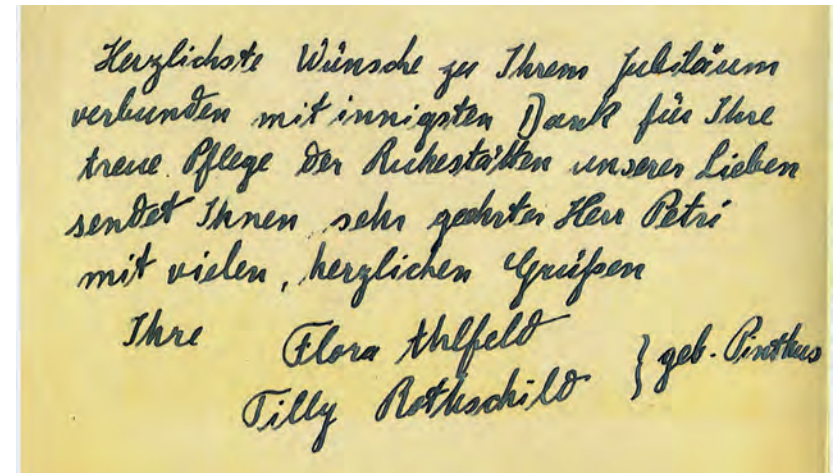 Herzlichste Wünsche zu Ihrem Jubiläum
verbunden mit innigsten Dank für Ihre
treue Pflege der Ruhestätten unserer Lieben
sendet Ihnen sehr geehrter Herr Petri
mit vielen, herzlichen Grüßen
Ihre Flora Ahlfeld
Tilly Rothschild } geb. Pinthus